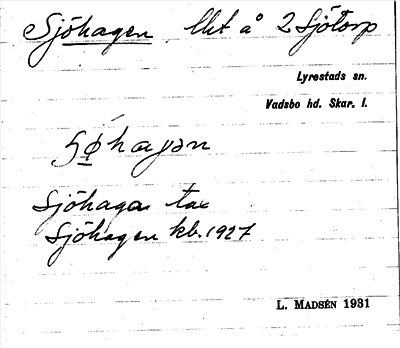 Sjöhagen. Llht å 2 Sjötorp
Lyrestads sn.
Vadsbo hd. Skar. l.
Sjöhagen tax
Sjöhagen kb. 1927
L. MADSÉN 1931